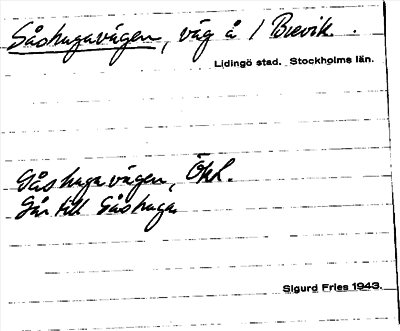 Gåshagavägen, väg å / Brevik.
Lidingö stad. Stockholms län.
Gåshagavägen, Ökl.
Går till Gåshaga
Sigurd Fries 1943.